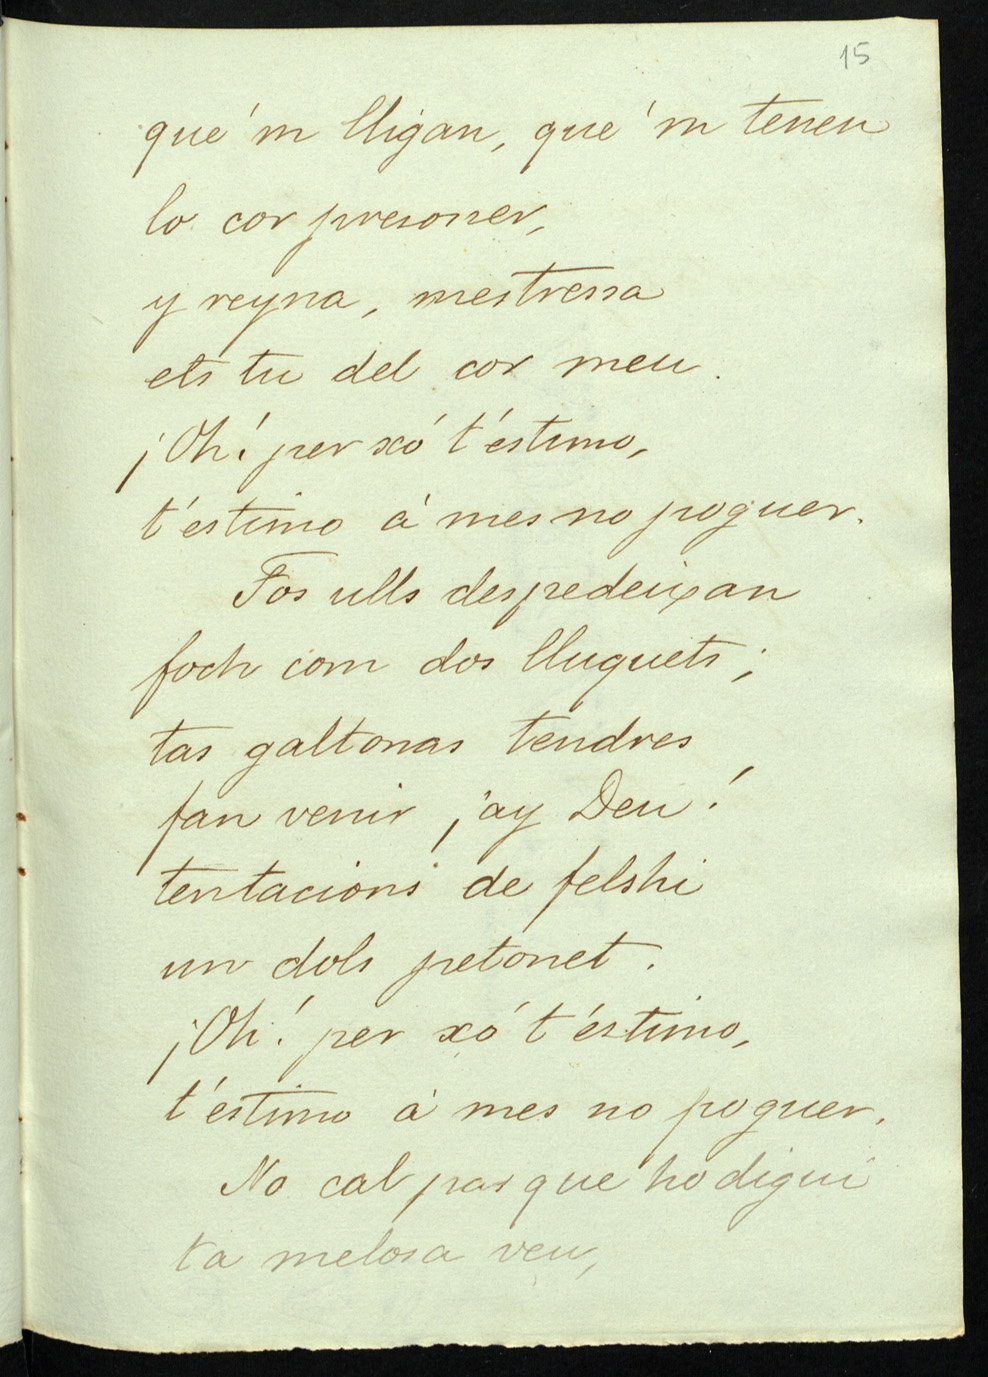 15
que'm lligan, que'm tenen
lo cor presoner,
y reyna, mestressa
ets tu del cor meu.
¡Oh! per xó t'éstimo,
t'éstimo á mes no poguer.
Tos ulls despedeixan
foch com dos lluquets;
tas galtonas tendres
fan venir ¡ay Deu!
tentacions de felshi
un dols petonet.
¡Oh! per xó t'éstimo,
t'éstimo á mes no poguer.
No cal pas que ho digui
ta melosa veu,